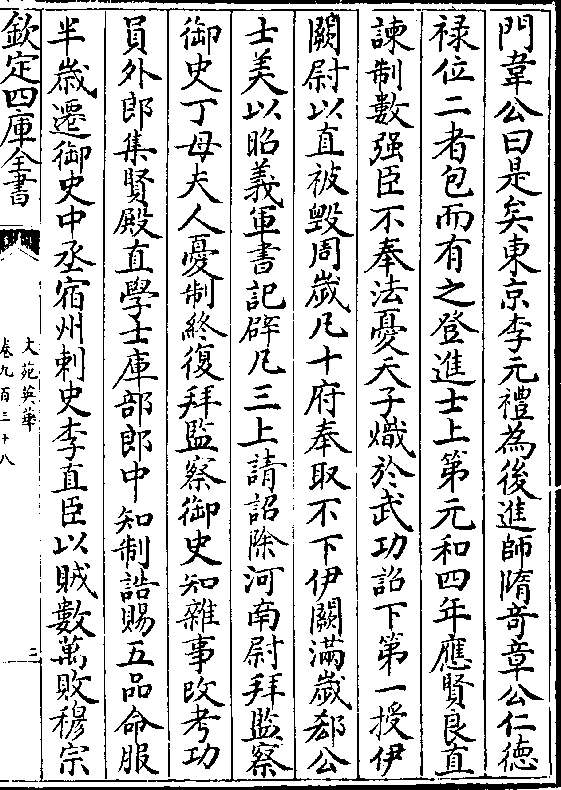 門韋公曰是矣東京李元禮為後進師隋竒章公仁德
禄位二者包而有之登進士上第元和四年應賢良直
諫制數强臣不奉法憂天子熾於武功詔下第一授伊
闕尉以直被毀周歲凡十府奉取不下伊闕滿歲郄公
士美以昭義軍書記辟凡三上請詔除河南尉拜監察
御史丁母夫人憂制終復拜監察御史知雜事改考功
員外郎集賢殿直學士庫部郎中知制誥賜五品命服
半歲遷御史中丞宿州刺史李直臣以賊數萬敗穆宗
欽定四庫全書
文苑英華
卷九百三十八
三